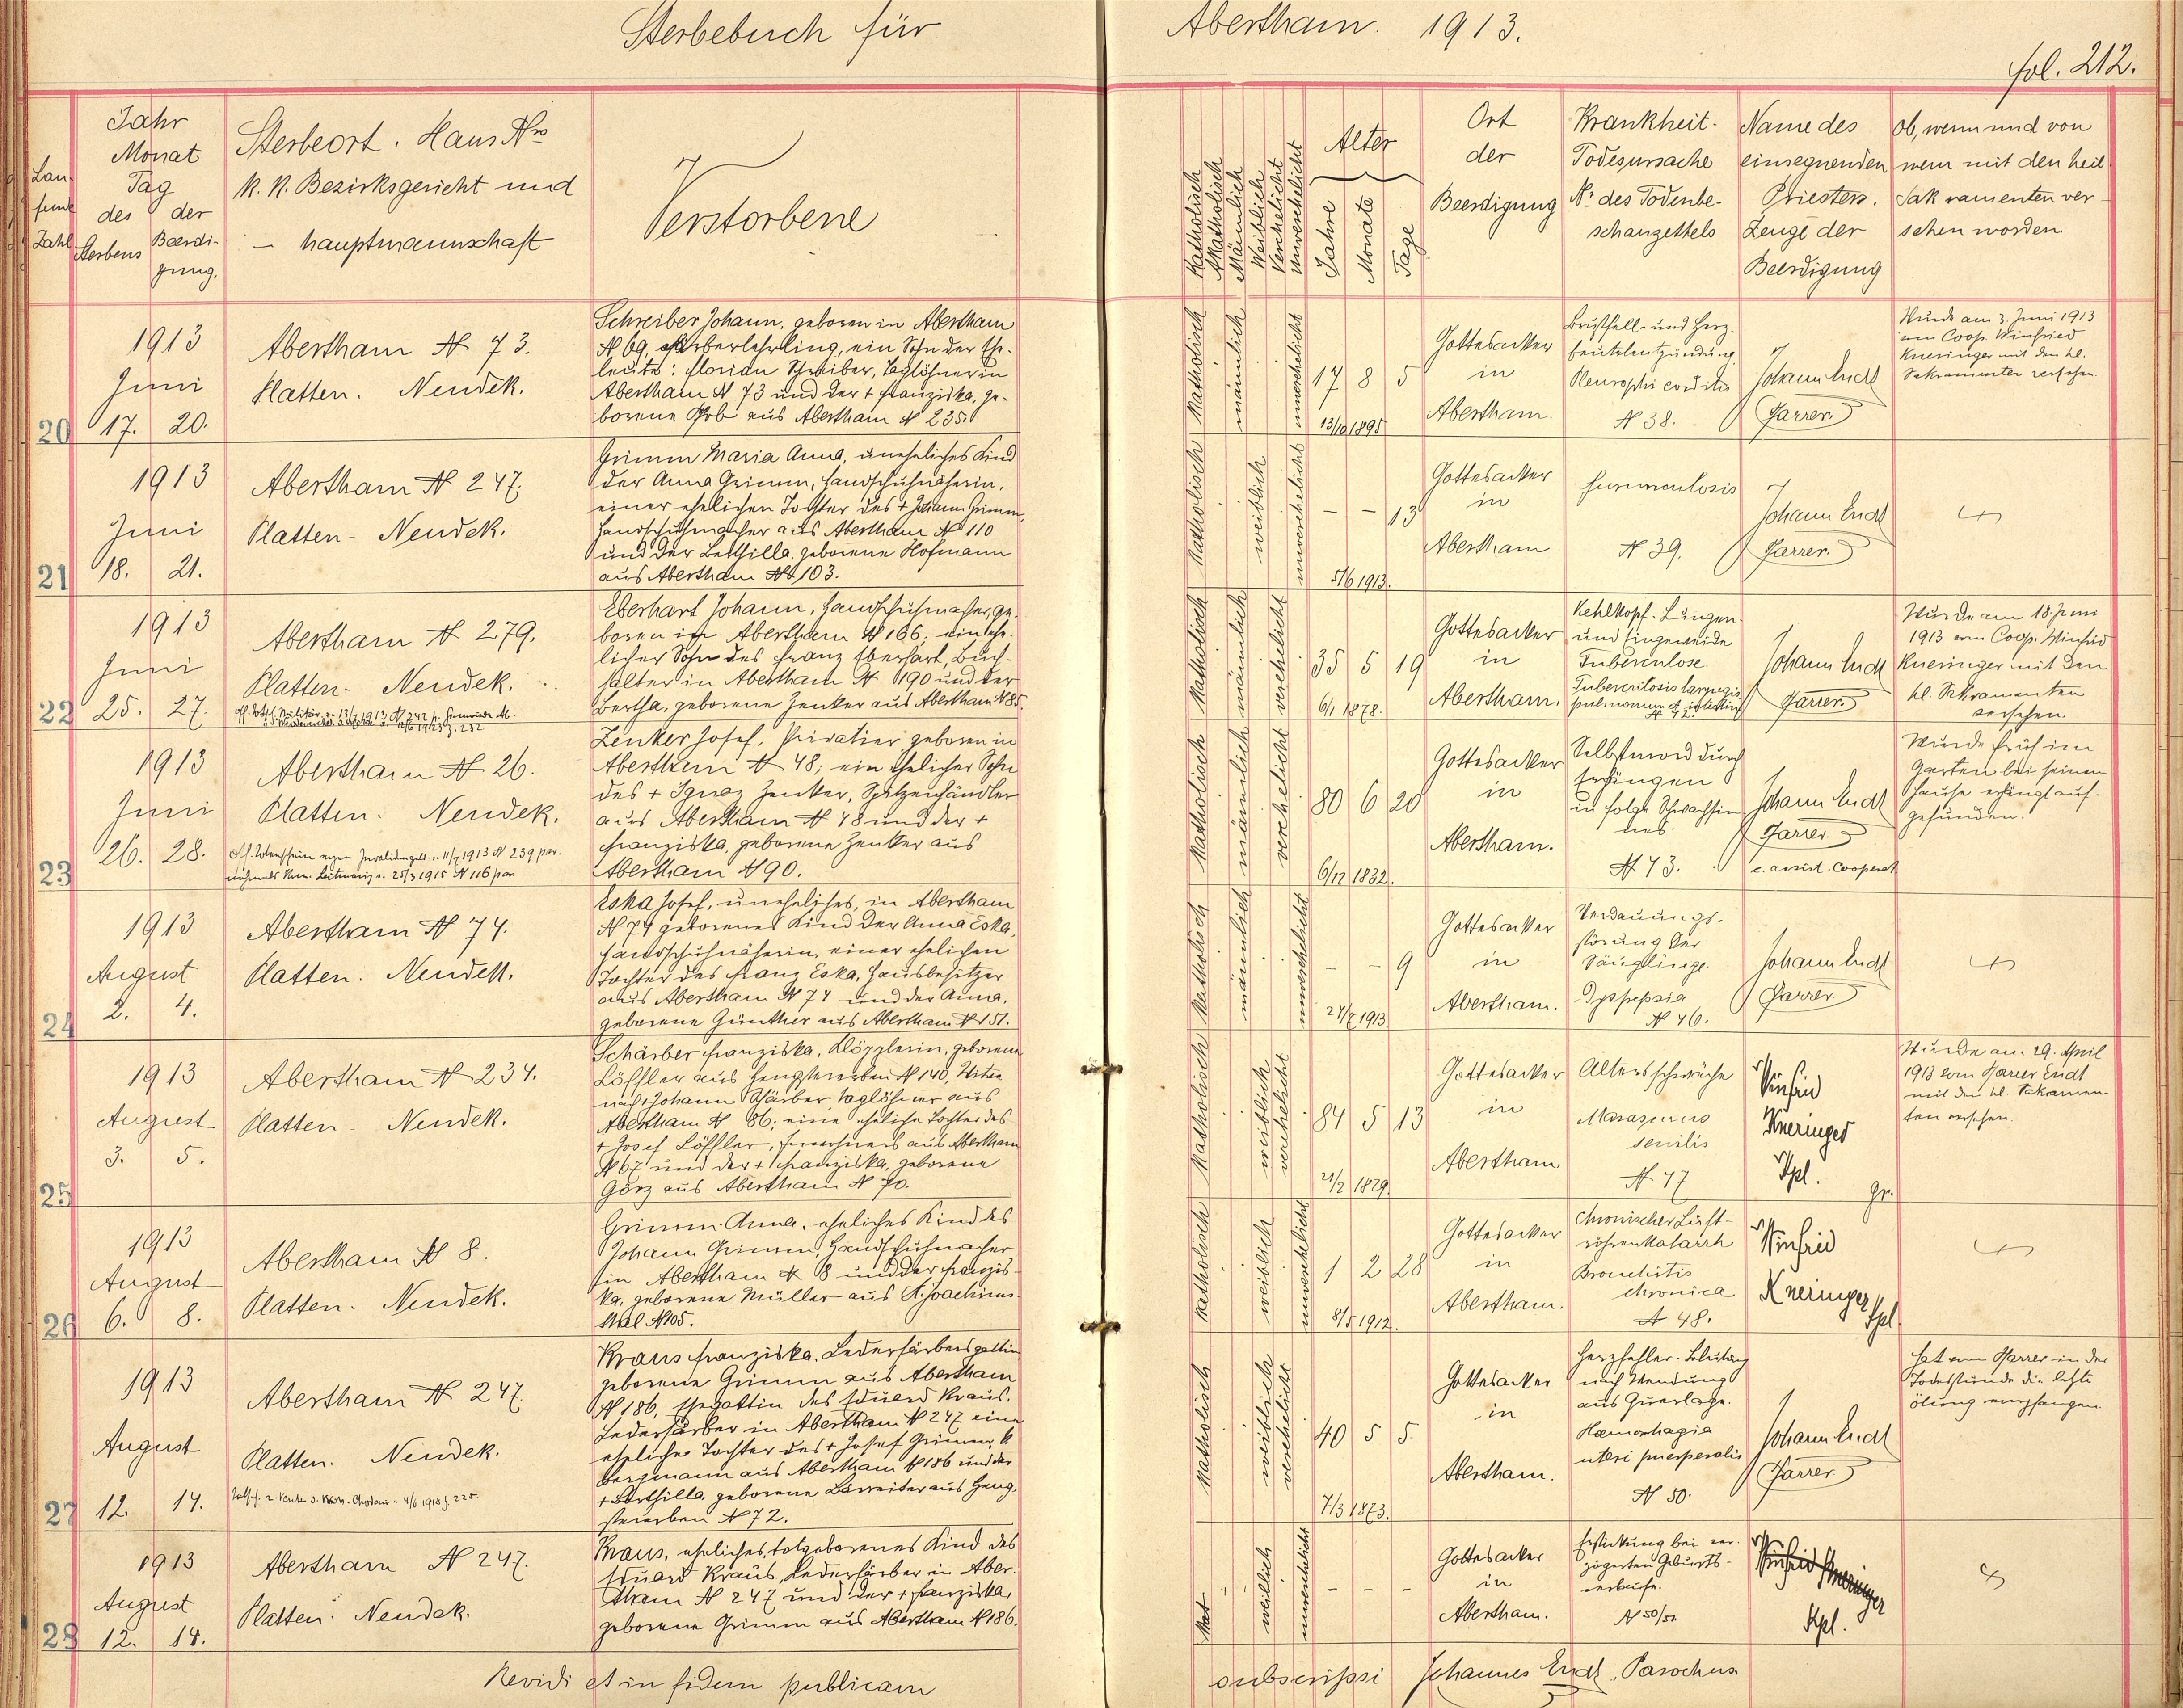 Sterbebuch für Abertham. 1913.
fol. 212.
Laufende Zahl
Jahr
Monat
Tag
des Sterbens
der Beerdigung.
Sterbeort. Haus Nro
K. K. Bezirksgericht und
– hauptmannschaft
Verstorbene
Katholisch
Akatholisch
Männlich
Weiblich
Verehelicht
Unverehelicht
Alter
Jahre
Monate
Tage
Ort
der
Beerdigung
Krankheit.
Todesursache
No des Todenbe-
schauzettels
Name des
einsegnenden
Priesters.
Zeuge der
Beerdigung
Ob, wenn und von
wem mit den heil.
Sakramenten ver-
sehen worden
20
1913
Juni
17. 20.
Abertham N 73.
Platten. Neudek.
Schreiber Johann, geboren in Abertham
N 69, Färberlehrling, ein Sohn der Ehe-
leute: Florian Schreiber, Taglöhner in
Abertham N 73 und der + Franziska, ge-
borene aus Abertham N 235.
Katholisch
männlich
unverehelicht
17 8 5
13/10 1895
Gottesacker
in
Abertham.
Brustfell- und Herz-
beutelentzündung
N 38.
Johann Endt
Pfarrer.
Wurde am 3. Juni 1913
vom Coop. Winfried
Kneringer mit den hl.
Sakramenten versehen.
21
1913
Juni
18. 21.
Abertham N 247.
Platten - Neudek.
Grimm Maria Anna, uneheliches Kind
der Anna Grimm, Handschuhnäherin,
einer ehelichen Tochter des + Johann Grimm,
Handschuhmacher aus Abertham No 110
und der Bertilla, geborene Hofmann
aus Abertham No 103.
Katholisch
weiblich
unverehelicht
– – 13
5/6 1913.
Gottesacker
in
Abertham
furunculosis
N 39.
Johann Endt
Pfarrer.
22
1913
Juni
25. 27.
Abertham N 279.
Platten - Neudek.
Eberhart Johann, Handschuhmacher, ge-
boren in Abertham N 166; ein ehe-
licher Sohn des Franz Eberhart, Buch-
halter in Abertham N 190 und der
Bertha, geborene Zenker aus Abertham N 85.
Katholisch
männlich
verehelicht
35 5 19
6/1 1878.
Gottesacker
in
Abertham.
Kehlkopf- Lungen-
und Eingeweide
Tuberculose.
Tuberculosis laryngis
pulmonum et
N 42.
Johann Endt
Pfarrer.
Wurde am 18 Juni
1913 vom Coop. Winfrid
Kneringer mit den
hl. Sakramenten
versehen.
23
1913
Juni
26. 28.
Abertham N 26.
Platten. Neudek.
Zenker Josef, Privatier geboren in
Abertham N 48; ein ehelicher Sohn
des + Ignaz Zenker, Spitzenhändler
aus Abertham N 48 und der +
Franziska, geborene Zenker aus
Abertham N 90.
Katholisch
männlich
verehelicht
80 6 20
6/12 1832.
Gottesacker
in
Abertham.
Selbstmord durch
Erhängen
in folge Schwachsin-
nes
N 43.
Johann Endt
Pfarrer
c. assist. Cooperat.
Wurde früh im
Garten bei seinem
Hause erhängt auf-
gefunden.
24
1913
August
2. 4.
Abertham N 74.
Platten. Neudek.
Eska Josef, uneheliches, in Abertham
N 74 geborenes Kind der Anna Eska,
Handschuhnäherin, einer ehelichen
Tochter des Franz Eska, Hausbesitzer
aus Abertham N 74 und der Anna,
geborene Günther aus Abertham N 151.
Katholisch
männlich
unverehelicht
– – 9
24/7 1913
Gottesacker
in
Abertham.
Verdauungs-
störung der
Säuglinge.
Dyspepsia
N 46.
Johann Endt
Pfarrer
25
1913
August
3. 5.
Abertham N 234.
Platten - Neudek.
Schärber Franziska, Klöpplerin, geborene
Löffler aus Hengstererben N 140, Witwe
nach + Johann Schärber Taglöhner aus
Abertham N 86; eine eheliche Tochter des
+ Josef Löffler, Einwohners aus Abertham
N 67 und der + Franziska, geborene
Görz aus Abertham N 70.
Katholisch
weiblich
verehelicht
84 5 13
20/2 1829.
Gottesacker
in
Abertham
Altersschwäche
Marasmus
senilis
N 47
Winfrid
Kneringer
Kpl.
Wurde am 29. April
1913 vom Pfarrer Endt
mit den hl. Sakramen-
ten versehen.
26
1913
August
6. 8.
Abertham N 8.
Platten. Neudek.
Grimm Anna, eheliches Kind des
Johann Grimm, Handschuhmacher
in Abertham N 8 und der Franzis-
ka, geborene Müller aus St. Joachims-
thal N 105.
Katholisch
weiblich
unverehelicht
1 2 28
8/5 1912.
Gottesacker
in
Abertham.
Chronischer Luft-
röhrenkatarrh
Bronchitis
chronica
N 48.
Winfrid
Kneringer
Kpl.
27
1913
August
12. 14.
Abertham N 247.
Platten. Neudek.
Kraus Franziska, Lederfärbersgattin
geborene Grimm aus Abertham
N 186, Ehegattin des Eduard Kraus,
Lederfärber in Abertham N 247 eine
eheliche Tochter des + Josef Grimm,
Bergmann aus Abertham N 186 und der
+ Berthilla, geborene aus Heng-
stererben N 72.
Katholisch
weiblich
verehelicht
40 5 5
7/3 1873.
Gottesacker
in
Abertham.
Herzfehler - Blutung
nach Wendung
aus Querlage.
Hæmorrhagia
uteri puerperalis
N 50.
Johann Endt
Pfarrer
Hat vom Pfarrer in der
Todesstunde die letzte
Ölung empfangen.
28
1913
August
12. 14.
Abertham N 247.
Platten. Neudek.
Kraus, eheliches, totgeborenes Kind des
Eduard Kraus, Lederfärber in Aber-
tham N 247 und der + Franziska,
geborene Grimm aus Abertham N 186.
Kat
weiblich
unverehelicht
– – –
Gottesacker
in
Abertham.
Erstickung bei ver-
zögerten Geburts-
verlaufe.
N 50/51
Winfrid Kneringer
Kpl.
Revidi et in fidem publicam subscripsi Johannes Endt, Parochus